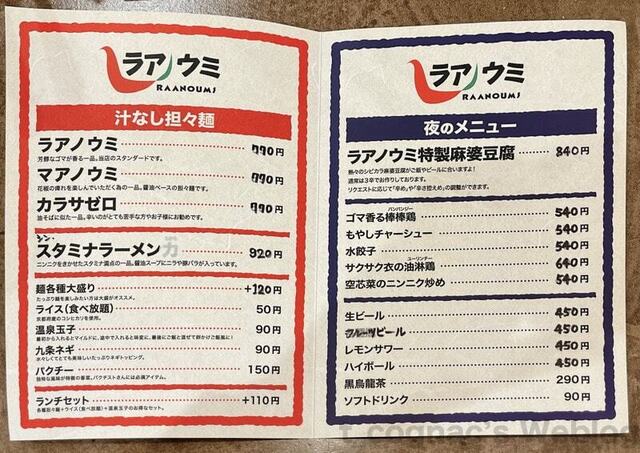 ラアノウミ
RAANOUMI
汁なし担々麺
ラアノウミ 990円
芳醇なゴマが香る一品。当店のスタンダードです。
マアノウミ 990円
花椒の痺れを楽しんでいただく為の一品。醤油ベースの担々麺です。
カラサゼロ 990円
油そばに似た一品。辛いのがとても苦手な方やお子様にお勧めです。
シン・
スタミナラーメン 920円
ニンニクをきかせたスタミナ満点の一品。醤油スープにニラや豚バラが入っています。
麺各種大盛り +120円
たっぷり麺を楽しみたい方は大盛がオススメ。
ライス(食べ放題) 50円
京都府産のコシヒカリを使用。
温泉玉子 90円
最初から入れるとマイルドに、途中で入れると味変に、最後にご飯と混ぜて卵かけご飯風に!
九条ネギ 90円
水々しくてとても美味しいたっぷりネギトッピング。
パクチー 150円
独特な風味が特徴の香菜。パクチストさんには必須アイテム。
ランチセット +110円
各種担々麺+ライス(食べ放題)+温泉玉子のお得なセット。
ラアノウミ
RAANOUMI
夜のメニュー
ラアノウミ特製麻婆豆腐 840円
熱々のシビカラ麻婆豆腐がご飯やビールに合いますよ!
通常は3辛でお作りしております。
リクエストに応じて「辛め」や「辛さ控えめ」の調整ができます。
バンバンジー
ゴマ香る棒棒鶏 540円
もやしチャーシュー 540円
水餃子 540円
ユーリンチー
サクサク衣の油淋鶏 640円
空芯菜のニンニク炒め 540円
生ビール 450円
フルーツビール 450円
レモンサワー 450円
ハイボール 450円
黒烏龍茶 290円
ソフトドリンク 90円
cognac's Weblog